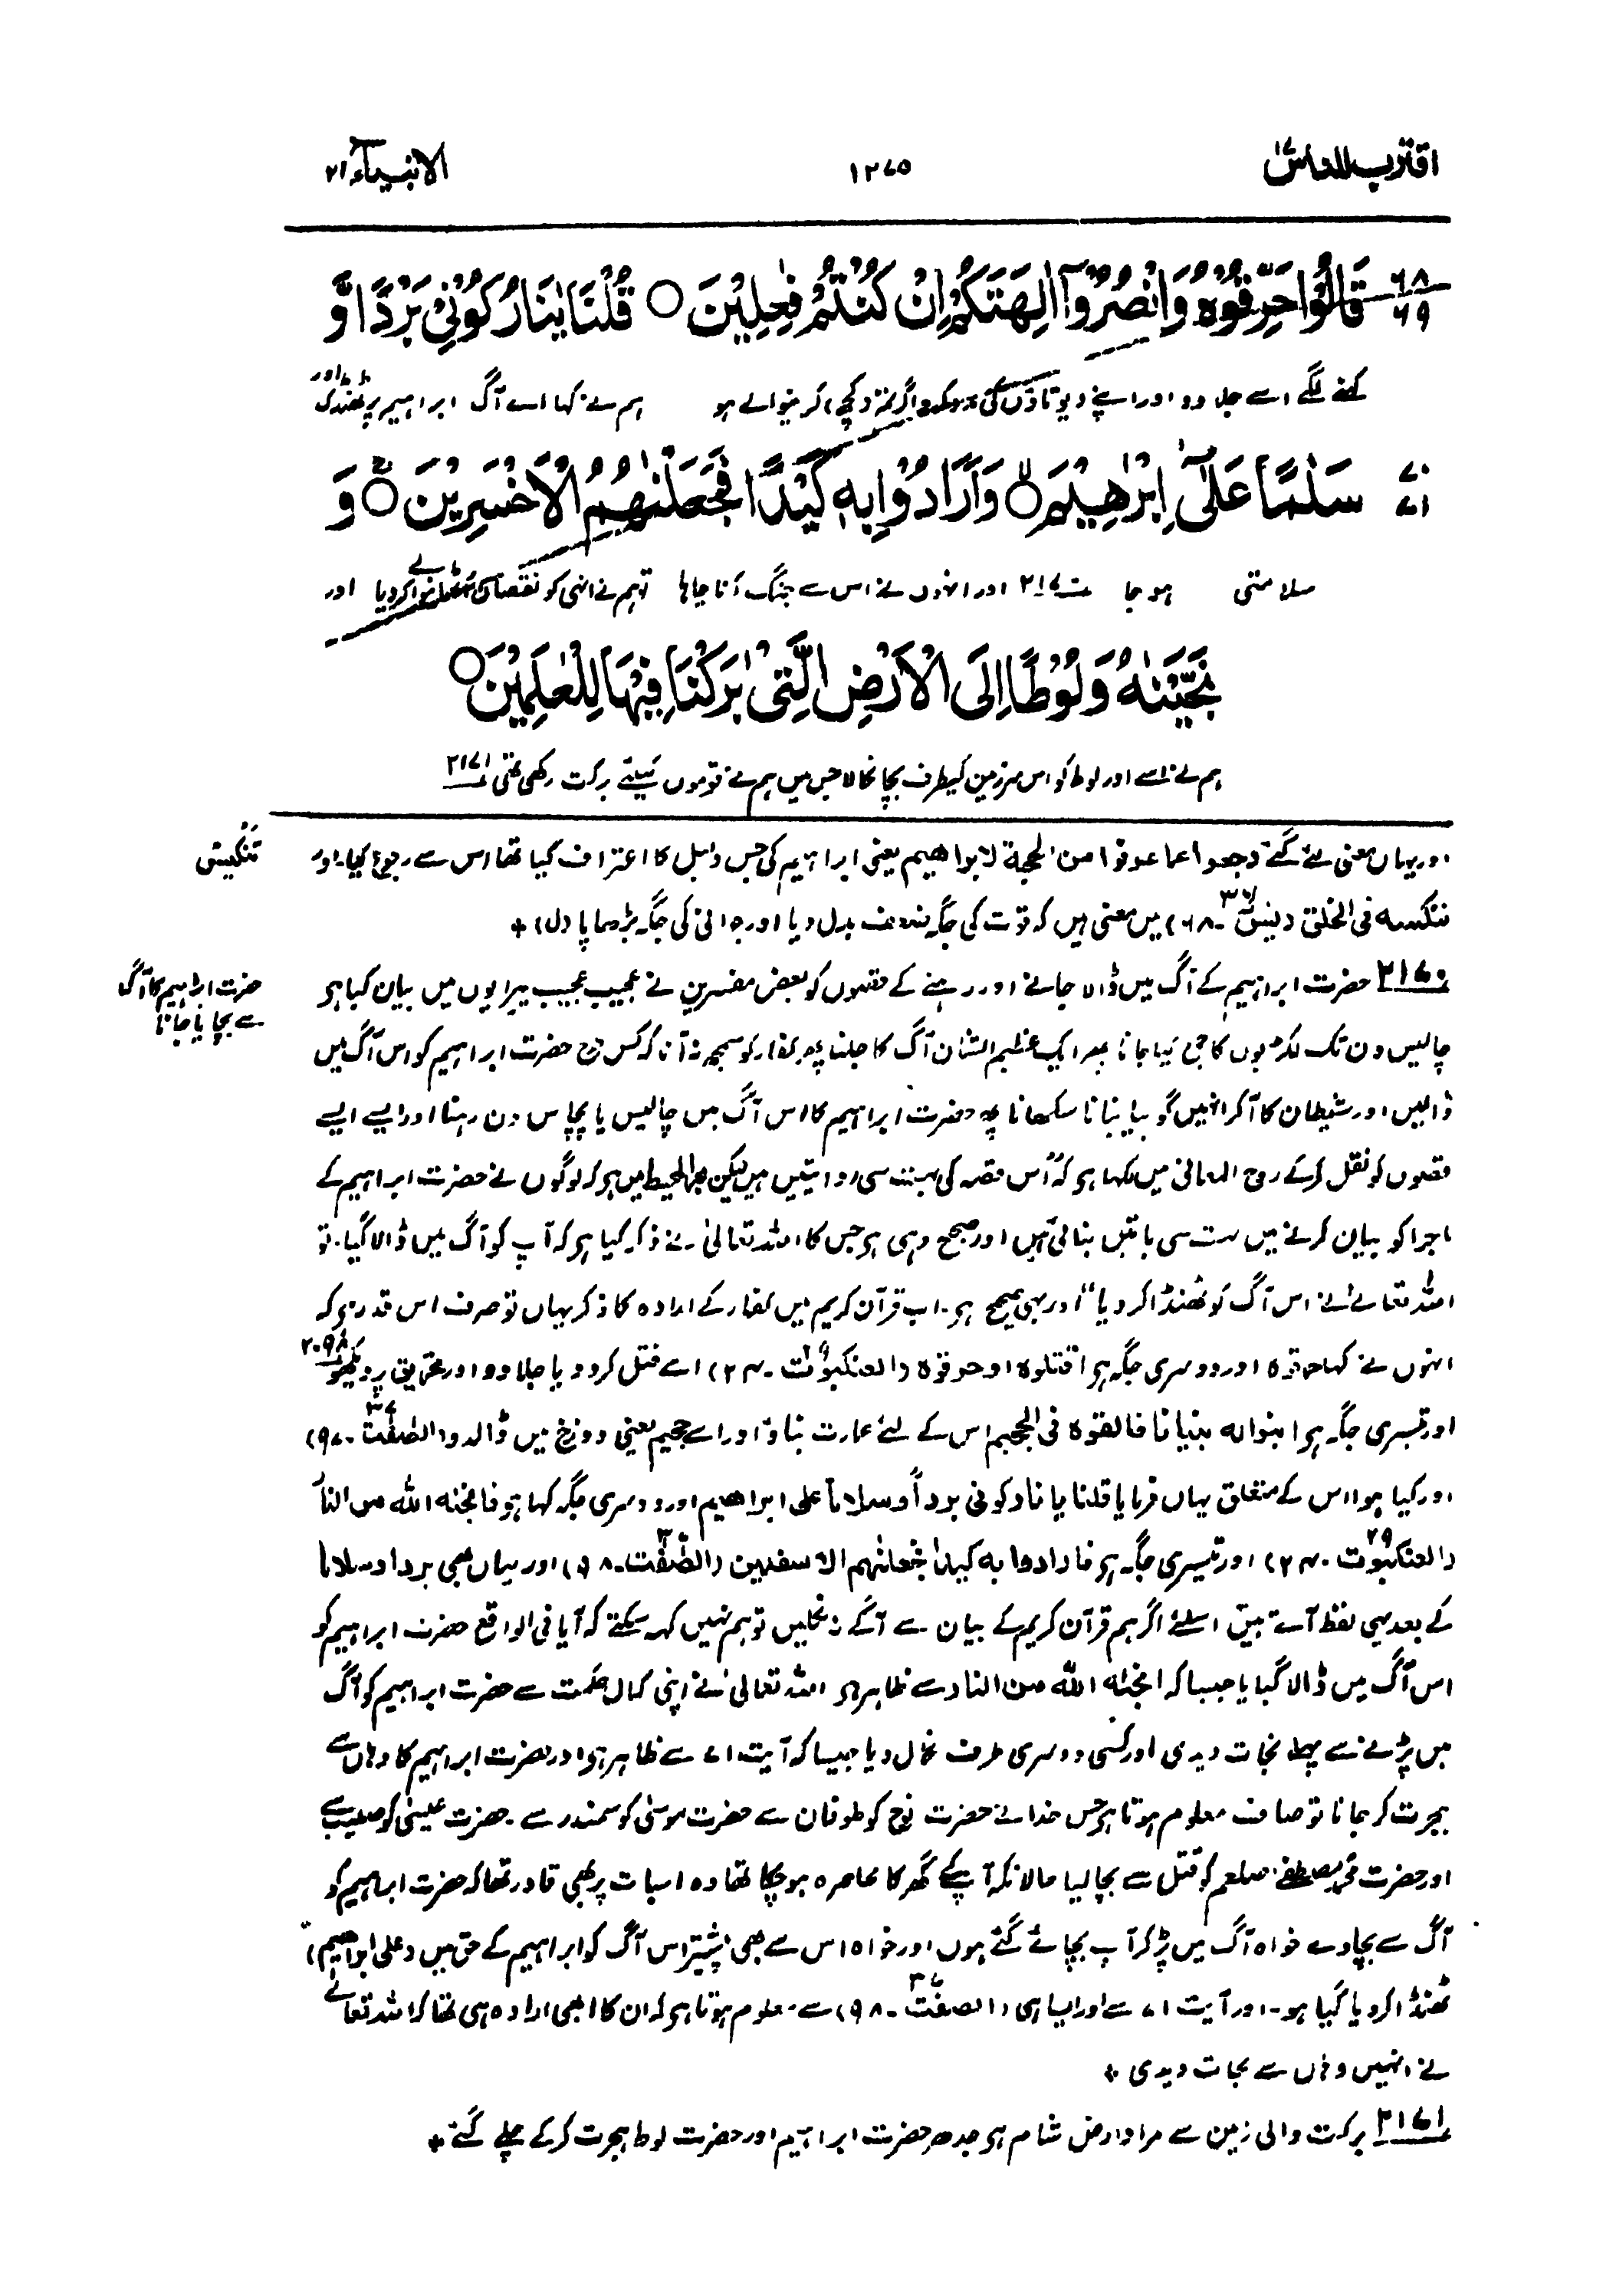 اقترب للناس ۱۷
۱۲۷۵
الانبیآء ۲۱
۶۸ ۶۹ قَالُوْا حَرِّقُوْهُ وَانْصُرُوْٓا اٰلِهَتَكُمْ اِنْ كُنْتُمْ فٰعِلِيْنَ ○ قُلْنَا يٰنَارُ كُوْنِيْ بَرْدًا وَّ
کہنے لگے اسے جلا دو اور اپنے دیوتاؤں کی مدد کرو اگر تم (کچھ) کرنیوالے ہو ہم نے کہا اے آگ ابراہیم پر ٹھنڈک اور
۷۰ ۷۱ سَلٰمًا عَلٰٓى اِبْرٰهِيْمَ ○ وَاَرَادُوْا بِهٖ كَيْدًا فَجَعَلْنٰهُمُ الْاَخْسَرِيْنَ ○ وَ
سلامتی ہو جا ۲۱۷۰ اور انہوں نے اس سے جنگ کرنا چاہا تو ہم نے انہی کو نقصان اٹھانے والے کر دیا اور
نَجَّيْنٰهُ وَلُوْطًا اِلَى الْاَرْضِ الَّتِيْ بٰرَكْنَا فِيْهَا لِلْعٰلَمِيْنَ ○
ہم نے اسے اور لوط کو اس سرزمین کیطرف بچا نکالا جس میں ہم نے قوموں کیلئے برکت رکھی تھی ۲۱۷۱
تنکیس
اور یہاں معنی لئے گئے رجعوا عما عرفوا من الحجة لابراهیم یعنی ابراہیم کی جس دلیل کا اعتراف کیا تھا اس سے رجوع کیا۔ اور
ننکسه فی الخلق (یٰسٓ ۳۶۔ ۶۸) میں معنی ہیں کہ قوت کی جگہ ضعف بدل دیا اور جوانی کی جگہ بڑھاپا (ل) +
حضرت ابراہیم کا آگ
سے بچایا جانا
۲۱۷۰ حضرت ابراہیم کے آگ میں ڈالا جانے اور رہنے کے قصوں کو بعض مفسرین نے عجیب عجیب پیرایوں میں بیان کیا ہو
چالیس دن تک لکڑیوں کا جمع کیا جانا پھر ایک عظیم الشان آگ کا جلنا پھر کفار کو سمجھ نہ آنا کہ کس طرح حضرت ابراہیم کو اس آگ میں
ڈالیں اور شیطان کا آکر انہیں گوپیا بنانا سکھانا پھر حضرت ابراہیم کا اس آگ میں چالیس یا پچاس دن رہنا اور ایسے ایسے
قصوں کو نقل کرکے روح المعانی میں لکھا ہو کہ "اس قصہ کی بہت سی روایتیں ہیں لیکن بحر المحیط میں ہو کہ لوگوں نے حضرت ابراہیم کے
ماجرا کو بیان کرنے میں بہت سی باتیں بنالی ہیں اور صحیح وہی ہو جس کا اللہ تعالیٰ نے ذکر کیا ہو کہ آپ کو آگ میں ڈالا گیا۔ تو
اللہ تعالے نے اس آگ کو ٹھنڈا کر دیا" اور یہی صحیح ہو۔ اب قرآن کریم میں کفار کے ارادہ کا ذکر یہاں تو صرف اس قدر ہو کہ
انہوں نے کہا حرقوه اور دوسری جگہ ہو اقتلوه او حرقوه (العنکبوت ۲۹۔ ۲۴) اسے قتل کر دو یا جلا دو اور تحریق پر دیکھو ۲۰۹۸
اور تیسری جگہ ہو ابنوا له بنیانا فالقوه فی الجحیم اس کے لئے عمارت بناؤ اور اسے جحیم یعنی دوزخ میں ڈالدو (الصّٰفّٰت ۳۷۔ ۹۷)
اور کیا ہوا اس کے متعلق یہاں فرمایا قلنا یا نار کونی برداً وسلاماً علی ابراهیم اور دوسری جگہ کہا ہو فانجٰه الله من النار
(العنکبوت ۲۹۔ ۲۴) اور تیسری جگہ ہو فارادوا به کیدا فجعلنٰهم الاسفلین (الصّٰفّٰت ۳۷۔ ۹۸) اور یہاں بھی بردا وسلاما
کے بعد یہی لفظ آتے ہیں۔ اسلئے اگر ہم قرآن کریم کے بیان سے آگے نہ نکلیں تو ہم نہیں کہہ سکتے کہ آیا فی الواقع حضرت ابراہیم کو
اس آگ میں ڈالا گیا یا جیسا کہ انجٰه الله من النار سے ظاہر ہو اللہ تعالیٰ نے اپنی کمال حکمت سے حضرت ابراہیم کو آگ
میں پڑنے سے پہلے نجات دیدی اور کسی دوسری طرف نکال دیا جیسا کہ آیت ۷۱ سے ظاہر ہو اور حضرت ابراہیم کا وہاں سے
ہجرت کر جانا تو صاف معلوم ہوتا ہو جس خدا نے حضرت نوح کو طوفان سے حضرت موسیٰ کو سمندر سے۔ حضرت عیسیٰ کو صلیب سے
اور حضرت محمد مصطفےٰ صلعم کو قتل سے بچا لیا حالانکہ آپ کے گھر کا محاصرہ ہو چکا تھا وہ اسبات پر بھی قادر تھا کہ حضرت ابراہیم کو
آگ سے بچا دے خواہ آگ میں پڑ کر آپ بچائے گئے ہوں اور خواہ اس سے بھی پیشتر اس آگ کو ابراہیم کے حق میں (علی ابراهیم)
ٹھنڈا کر دیا گیا ہو۔ اور آیت ۷۱ سے اور ایسا ہی (الصفت ۳۷۔ ۹۸) سے معلوم ہوتا ہو کہ ان کا ابھی ارادہ ہی تھا کہ اللہ تعالے
نے انہیں وہاں سے نجات دیدی +
۲۱۷۱ برکت والی زمین سے مراد ارض شام ہو جدھر حضرت ابراہیم اور حضرت لوط ہجرت کرکے چلے گئے +